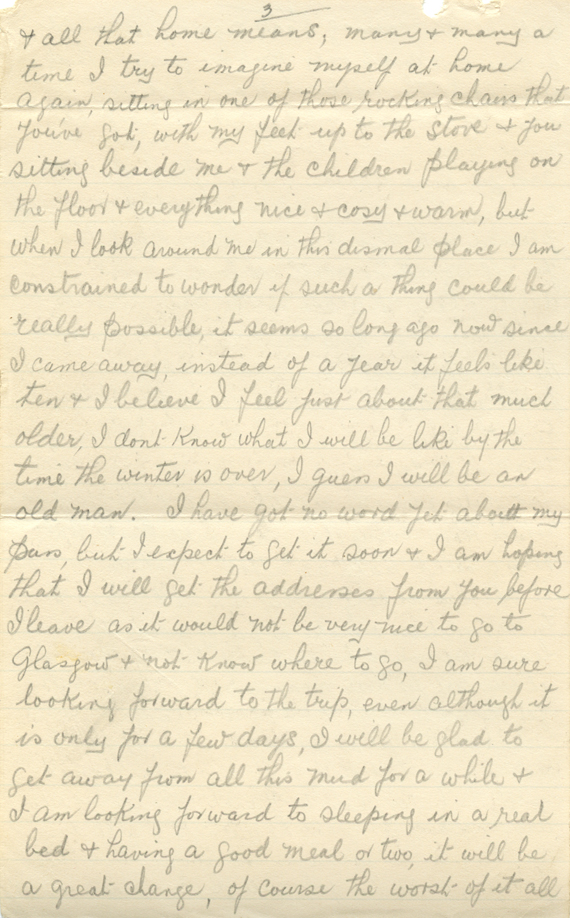 3
& all that home means, many & many a
time I try to imagine myself at home
again, sitting in one of those rocking chairs that
you've got, with my feet up to the stove & you
sitting beside me & the children playing on
the floor & everything nice & cosy & warm, but
when I look around me in this dismal place I am
constrained to wonder if such a thing could be
really possible, it seems so long ago now since
I came away, instead of a year it feels like
ten & I believe I feel just about that much
older, I dont know what I will be like by the
time the winter is over, I guess I will be an
old man. I have got no word yet about my
pass, but I expect to get it soon & I am hoping
that I will get the addresses from you before
I leave as it would not be very nice to go to
Glasgow & not know where to go, I am sure
looking forward to the trip, even although it
is only for a few days, I will be glad to
get away from all this mud for a while &
I am looking forward to sleeping in a real
bed & having a good meal or two, it will be
a great change, of course the worst of it all